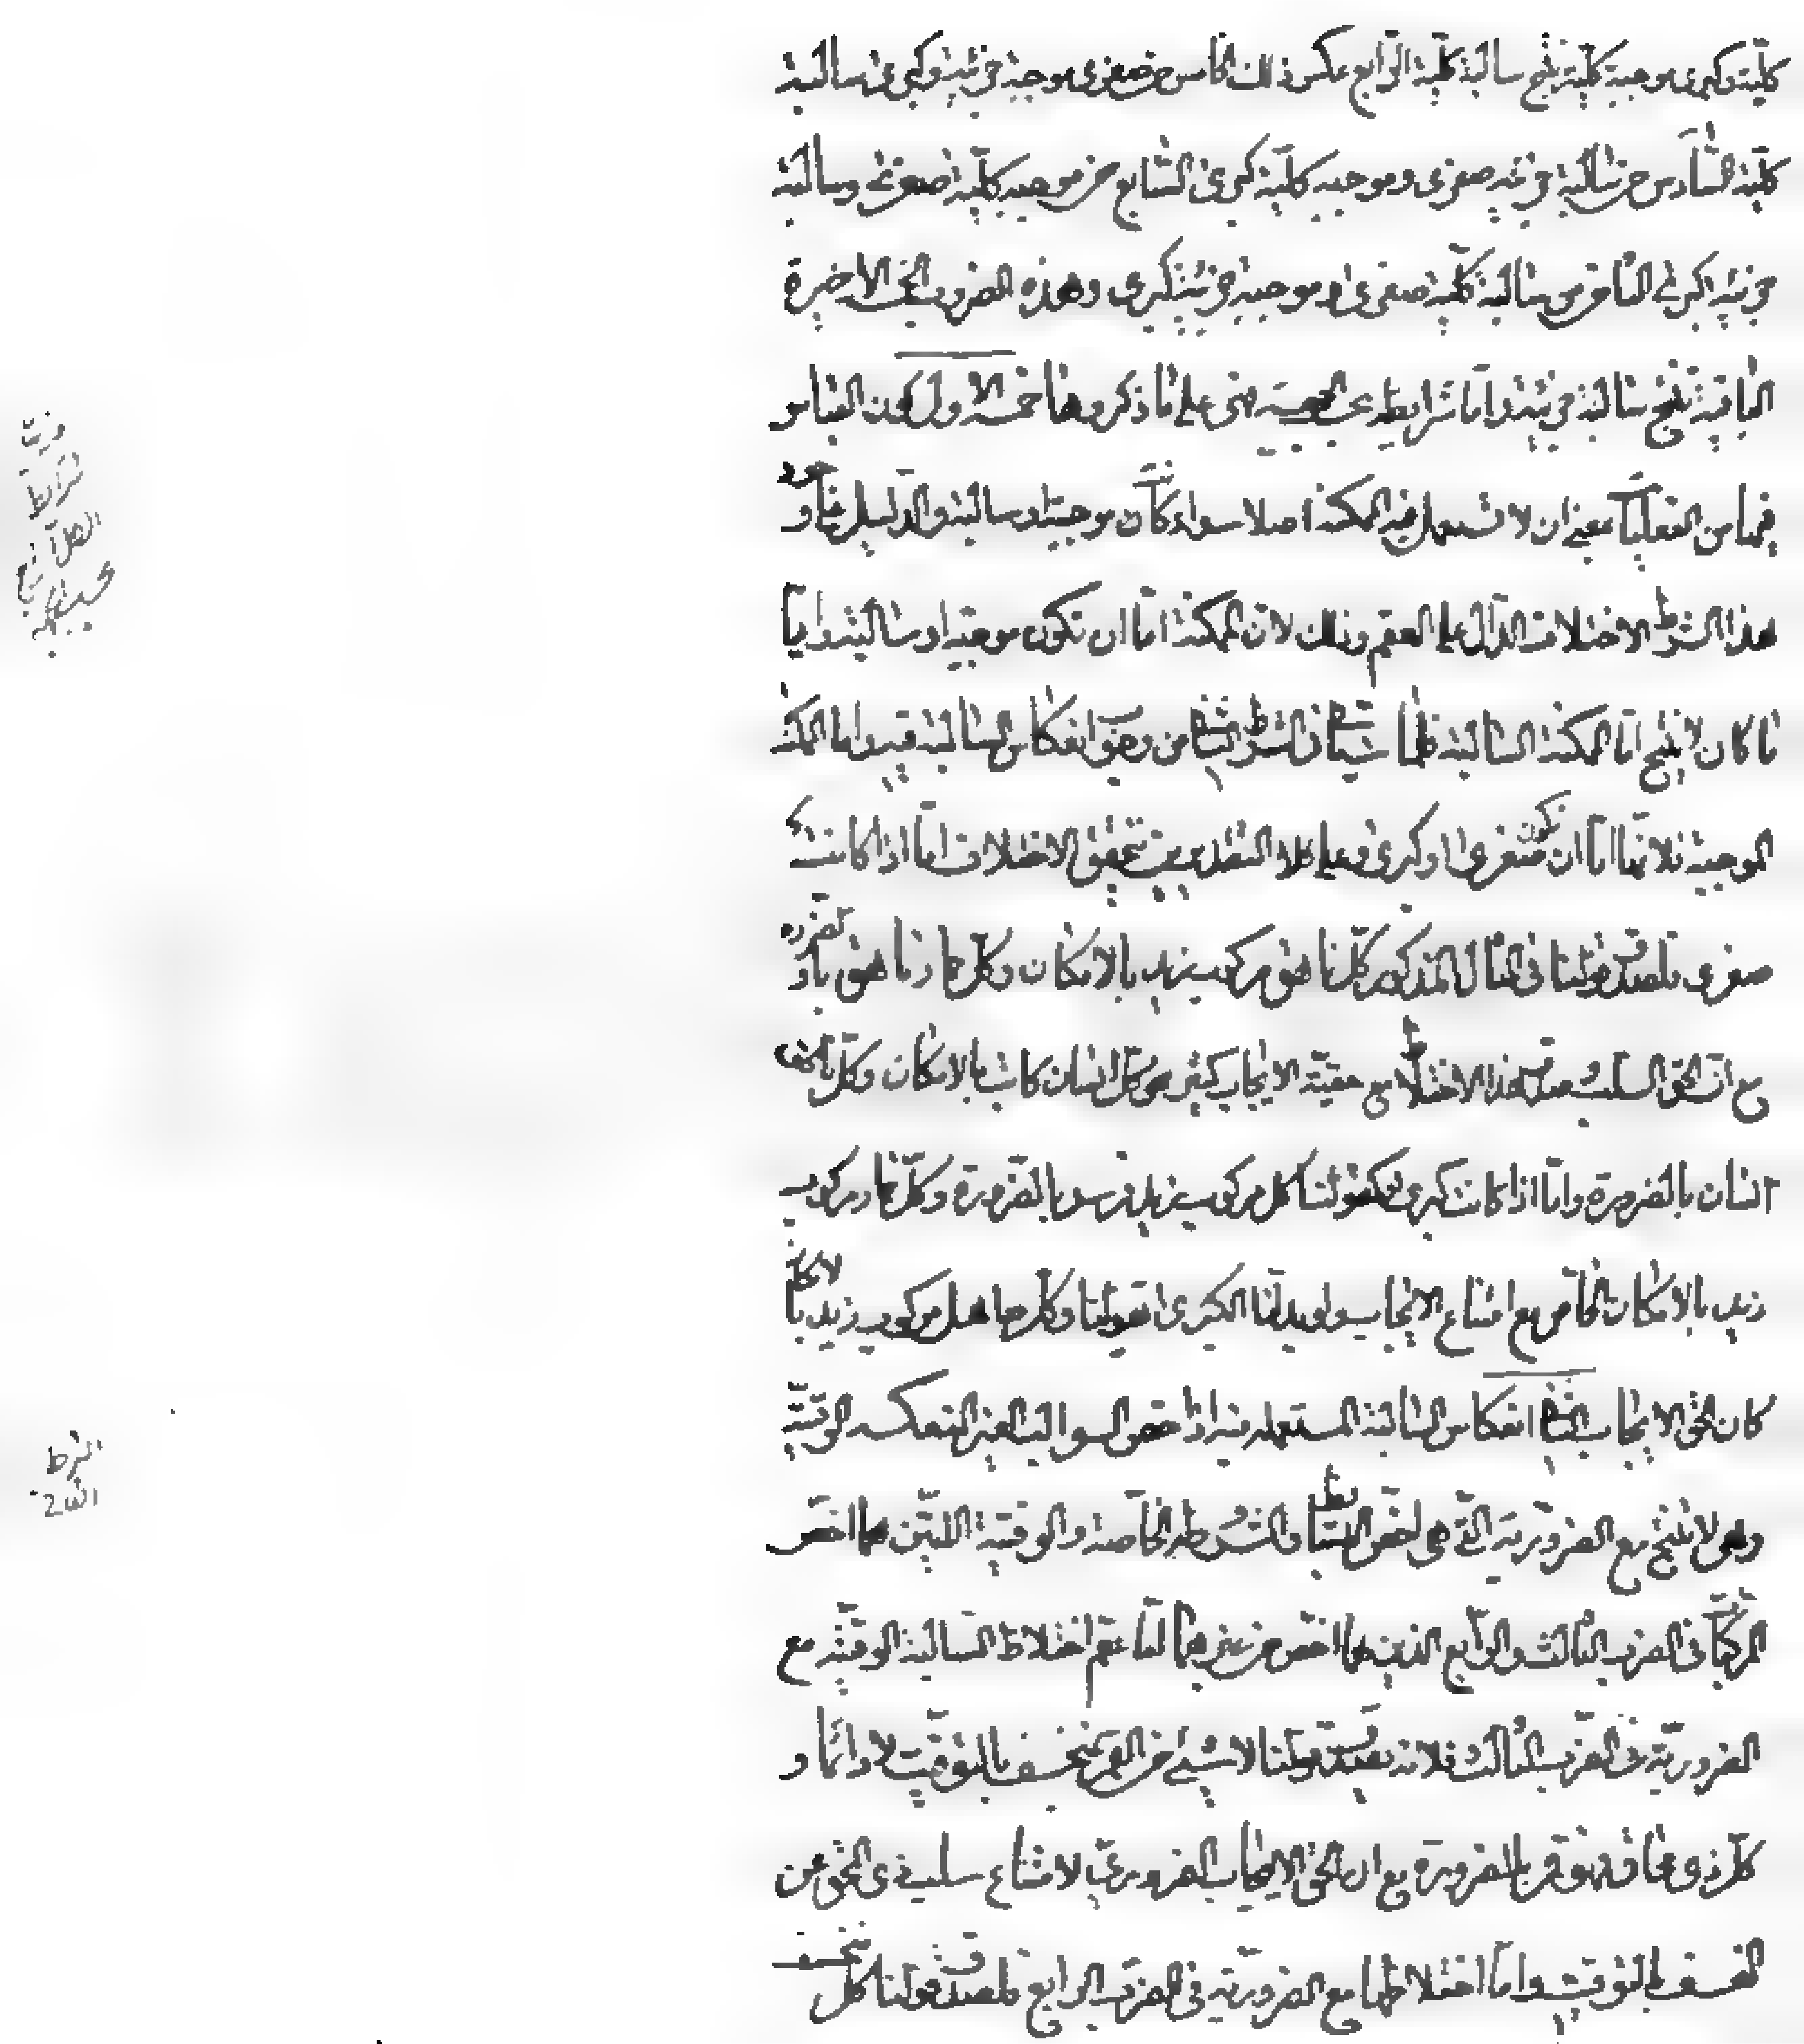 كلية وكبرى موجبة كلية ينتج سالبة كلية الرابع عكس ذلك الخامس من صغرى موجبة جزئية وكبرى سالبة
كلية السادس من سالبة جزئية صغرى وموجبه كلية كبرى السابع من موجبه كلية صغرى وسالبة
جزئية كبرى الثامن من سالبة كلية صغرى وموجبة جزئية كبرى وهذه الضروب الخمسه الاخيرة
الباقية تنتج سالبة جزئية واما شرايطه بحسب الجهة فهى على ما ذكروها خمسه الاول كون القياس
فيها من الفعليات بمعنى ان لا تستعمل فيه الممكنة اصلا سواء كانت موجبة او سالبة والدليل على
هذا الشرط الاختلاف الدال على العقم وذلك لان الممكنة اما ان تكون موجبة او سالبة وايا
ما كان لا ينتج اما الممكنة السالبة فلما سيأتى فى الشرط الثانى من وجوب انعكاس السالبة فيه واما الممكنة
الموجبة فلانها اما ان تكون صغرى او كبرى وعلى كلا التقديرين يتحقق الاختلاف اما اذا كانت
صغرى فلصدق قولنا فى المثال المذكور كل ناهق مركوب زيد بالامكان وكل حمار ناهق بالضرورة
مع ان الحق السلب وصدق هذا الاختلاط مع حقية الايجاب كثير كقولنا كل انسان كاتب بالامكان وكل ناطق
انسان بالضرورة واما اذا كانت كبرى فكقولنا كل مركوب زيد فرس بالضرورة وكل حمار مركوب
زيد بالامكان الخاص مع امتناع الايجاب ولو بدلنا الكبرى بقولنا وكل صاهل مركوب زيد بالامكان
كان الحق الايجاب الثانى انعكاس السالبة المستعمله فيه اذ اخص السوالب الغير المنعكسه الوقتية
وهى لا تنتج مع الضرورية التى هى اخص البسائط والمشروطه الخاصة والوقتية اللتين هما اخص
المركبات فى الضرب الثالث والرابع الذين هما اخص من غيرهما اما عقم اختلاط السالبة الوقتية مع
الضرورية فى الضرب الثالث فلانه يصدق قولنا لا شىء من القمر بمنخسف بالتوقيت لا دائما و
كل ذى محاق فهو قمر بالضرورة مع ان الحق الايجاب الضرورى لامتناع سلب ذى المحق عن
المنخسف بالتوقيت واما اختلاطها مع الضرورية فى الضرب الرابع فلصدق قولنا كل منخسف
شرايط
الشكل الرابع
بحسب الجهة
الشرط
الثانى